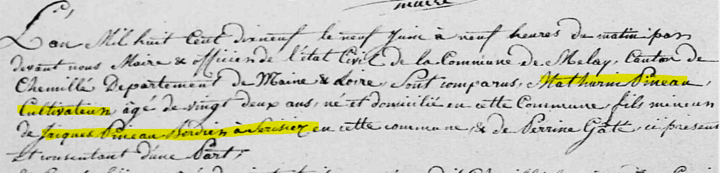 maire
L'an Mil huit Cent dixneuf le neuf Juin à neuf heures du matin par
devant nous Maire & officier de l'état Civil de la Commune de Melay, Canton de
Chemillé Departement de Maine & Loire, Sont comparus, Mathurin Pineau,
Cultivateur, âgé de vingt deux ans, né et domicilié en cette Commune fils mineur
de Jacques Pineau à en cette commune, & de Perrine Gâté, ci present
et consentant d'une Part;